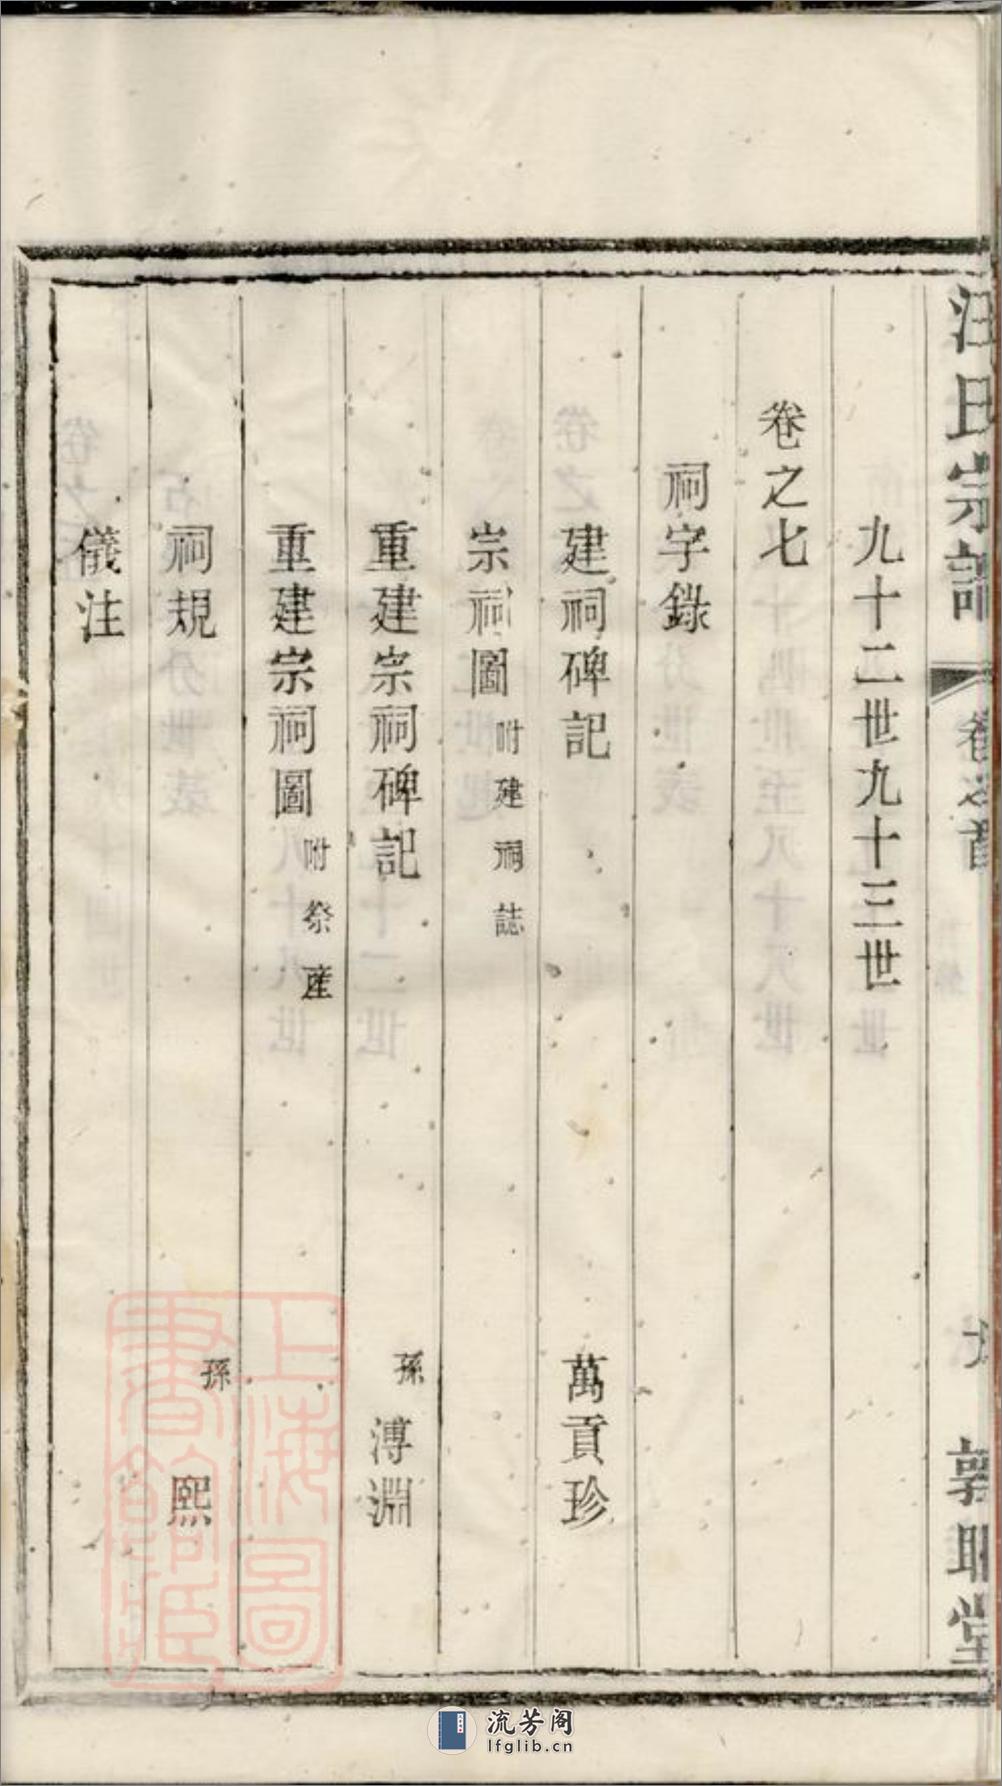 汪氏宗譜
卷之首
敦睦堂
九十二世九十三世
卷之七
祠宇錄
建祠碑記 萬貢珍
宗祠圖 附建祠誌
重建宗祠碑記 孫溥淵
重建宗祠圖 附祭產
祠規 孫熙
儀注
上海圖書館藏
流芳阁
lfglib.cn